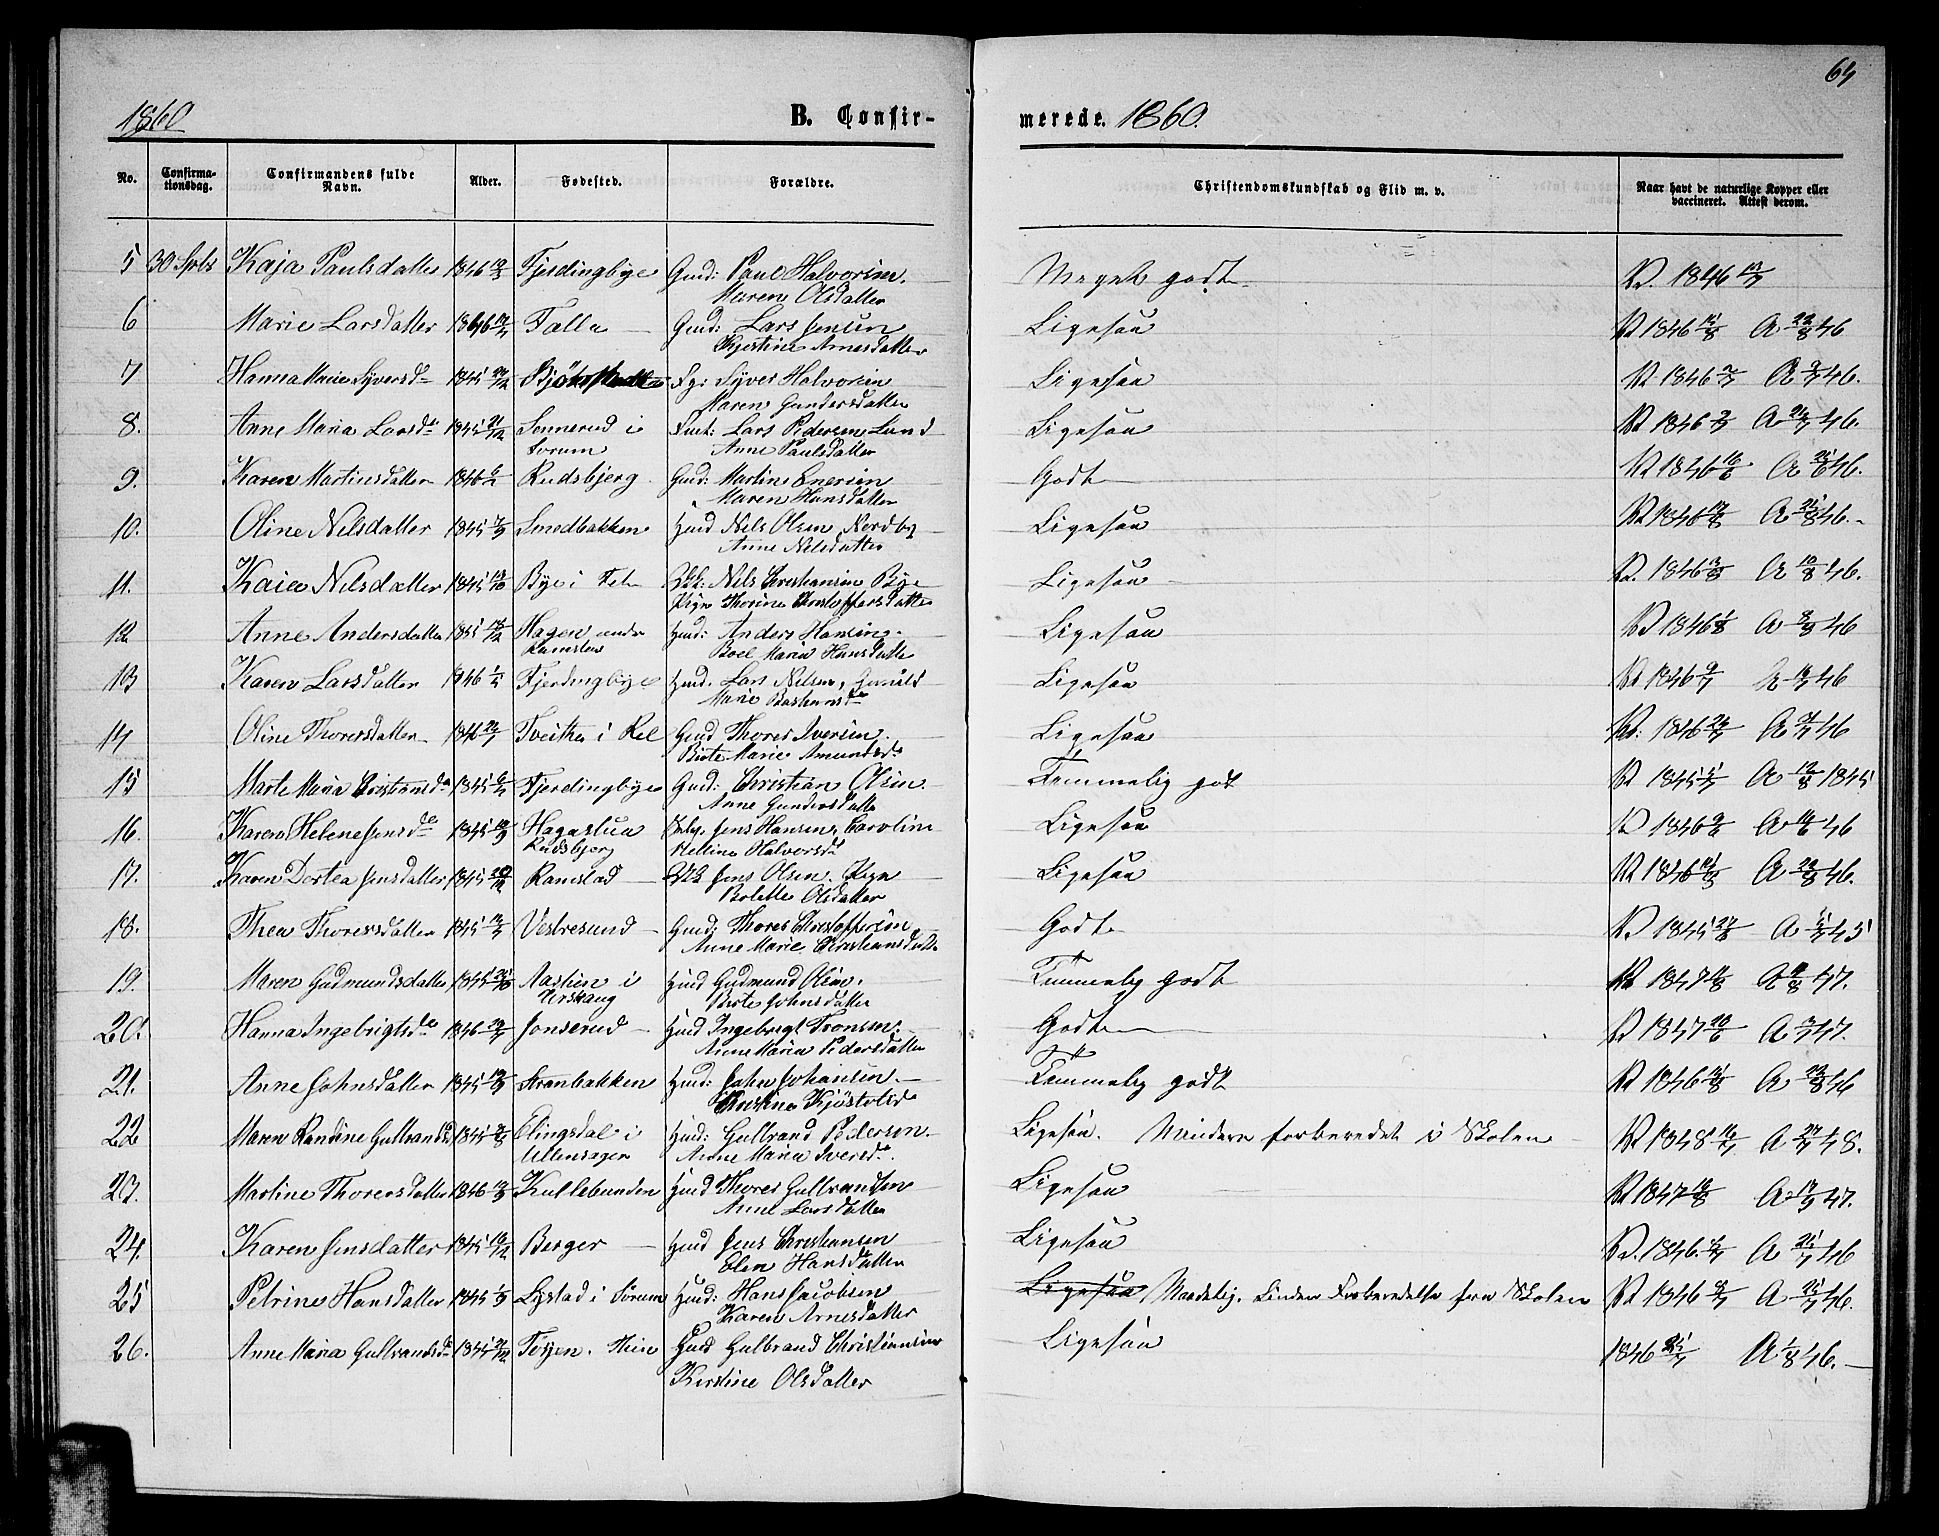 64
1860 B. Confirmerede. 1860.
No. Confirmationsdag. Confirmandens fulde Navn. Alder. Fødested. Forældre. Christendomskundskab og Flid m. v. Naar havt de naturlige Kopper eller vaccineret. Attest derom.
5 30 Septbr Kaja Paulsdatter 1846 Fjerdingbye Gmd: Paul Halvorsen. Meget godt V. 1846
Maren Olsdatter
6 Marie Larsdatter 1846 Falla Gmd: Lars Jensen Ligesaa V 1846 A 46
Kjerstine Arnesdatter
7 Hanna Marie Syversd 1845 Syver Halvorsen Ligesaa V 1846 A 46.
Maren Gundersdatter
8. Anne Maria Larsd 1845 Sonnerud i Lars Pedersen Lund Ligesaa V 1846 A 46.
Sorum Anne Paulsdatter
9. Karen Martinsdatter 1846 Rudsbjerg Gmd: Martin Enersen Godt V 1846 A 46.
Maren Hansdatter
10. Oline Nilsdatter 1845 Smedbakken Hmd Nils Olsen Nordby Ligesaa V 1846 A 46.
Anne Nilsdatter
11. Kaia Nilsdatter 1845 Bye i Fet Nils Christiansen Bye Ligesaa V. 1846 A 46.
Pige Thorine Christoffersdatter
12 Anne Andersdatter 1845 Hagen under Hmd: Anders Hansen Ligesaa V 1846 A 46
Ramstad Boel Maria Hansdatter
13 Karen Larsdatter 1846 Fjerdingbye Hmd. Lars Nilsen, Ligesaa V 1846 A 46
Marie
14 Oline Thorersdatter 1846 Tveiter i Gmd Thorer Iversen. Ligesaa V. 1846 A 46
Birte Marie Amundsd
15 Marte Maria Cristiansd 1845 Fjerdingbye Gmd: Christian Olsen. Temmelig godt V 1845 A 1845
Anne Gundersdatter
16. Karen Helene Jensd 1845 Hagastua Jens Hansen, Caroline Ligesaa V 1846 A 46
Rudsbjerg Mettine Halvorsd
17. Karen Dortea Jensdatter 1845 Ramstad Jens Olsen. Pige Ligesaa V 1846 A 46.
Bolette Olsdatter
18. Thea Thorersdatter 1845 Vestresund Gmd: Thorer Christoffersen Godt V 1845 A 45
Anne Marie Christiansdatter
19. Maren Gudmundsdatter 1845 Aastien i Hmd Gudmund Olsen. Temmelig godt V 1847 A 47.
Urskaug Birte Johnsdatter
20. Hanna Ingebrigtsd 1846 Jonserud Hmd Ingebrigt Tronsen. Godt V 1847 A 47.
Anne Maria Pedersdatter
21. Anne Johnsdatter 1845 Stranbakken Hmd: John Johansen. Temmelig godt V 1846 A 46
Kristine Kjøstolsd
22 Maren Randine Gulbrandsd 1845 Elingsdal i Hmd: Gulbrand Pederson. Ligesaa. Mindre forberedet i Skolen V 1848 A 48.
Ullensager Anne Maria Iversd.
23. Martine Thorersdatter 1846 Kullebunden Hmd Thorer Gulbrandsen Ligesaa V 1847 A 47.
Anne Larsdatter
24. Karen Jensdatter 1845 Berger Hmd Jens Christiansen Ligesaa V. 1846 A 46
Elen Hansdatter
25 Petrine Hansdatter 1845 Lystad i Sorum Hmd: Hans Jacobsen Ligesaa Maadelig. Liden Forberedelse fra Skolen V 1846 A 46.
Karen Arnesdatter
26. Anne Maria Gulbrandsd 1845 Hmd Gulbrand Christiansen Ligesaa 1846 A 46.
Kirstine Olsdatter